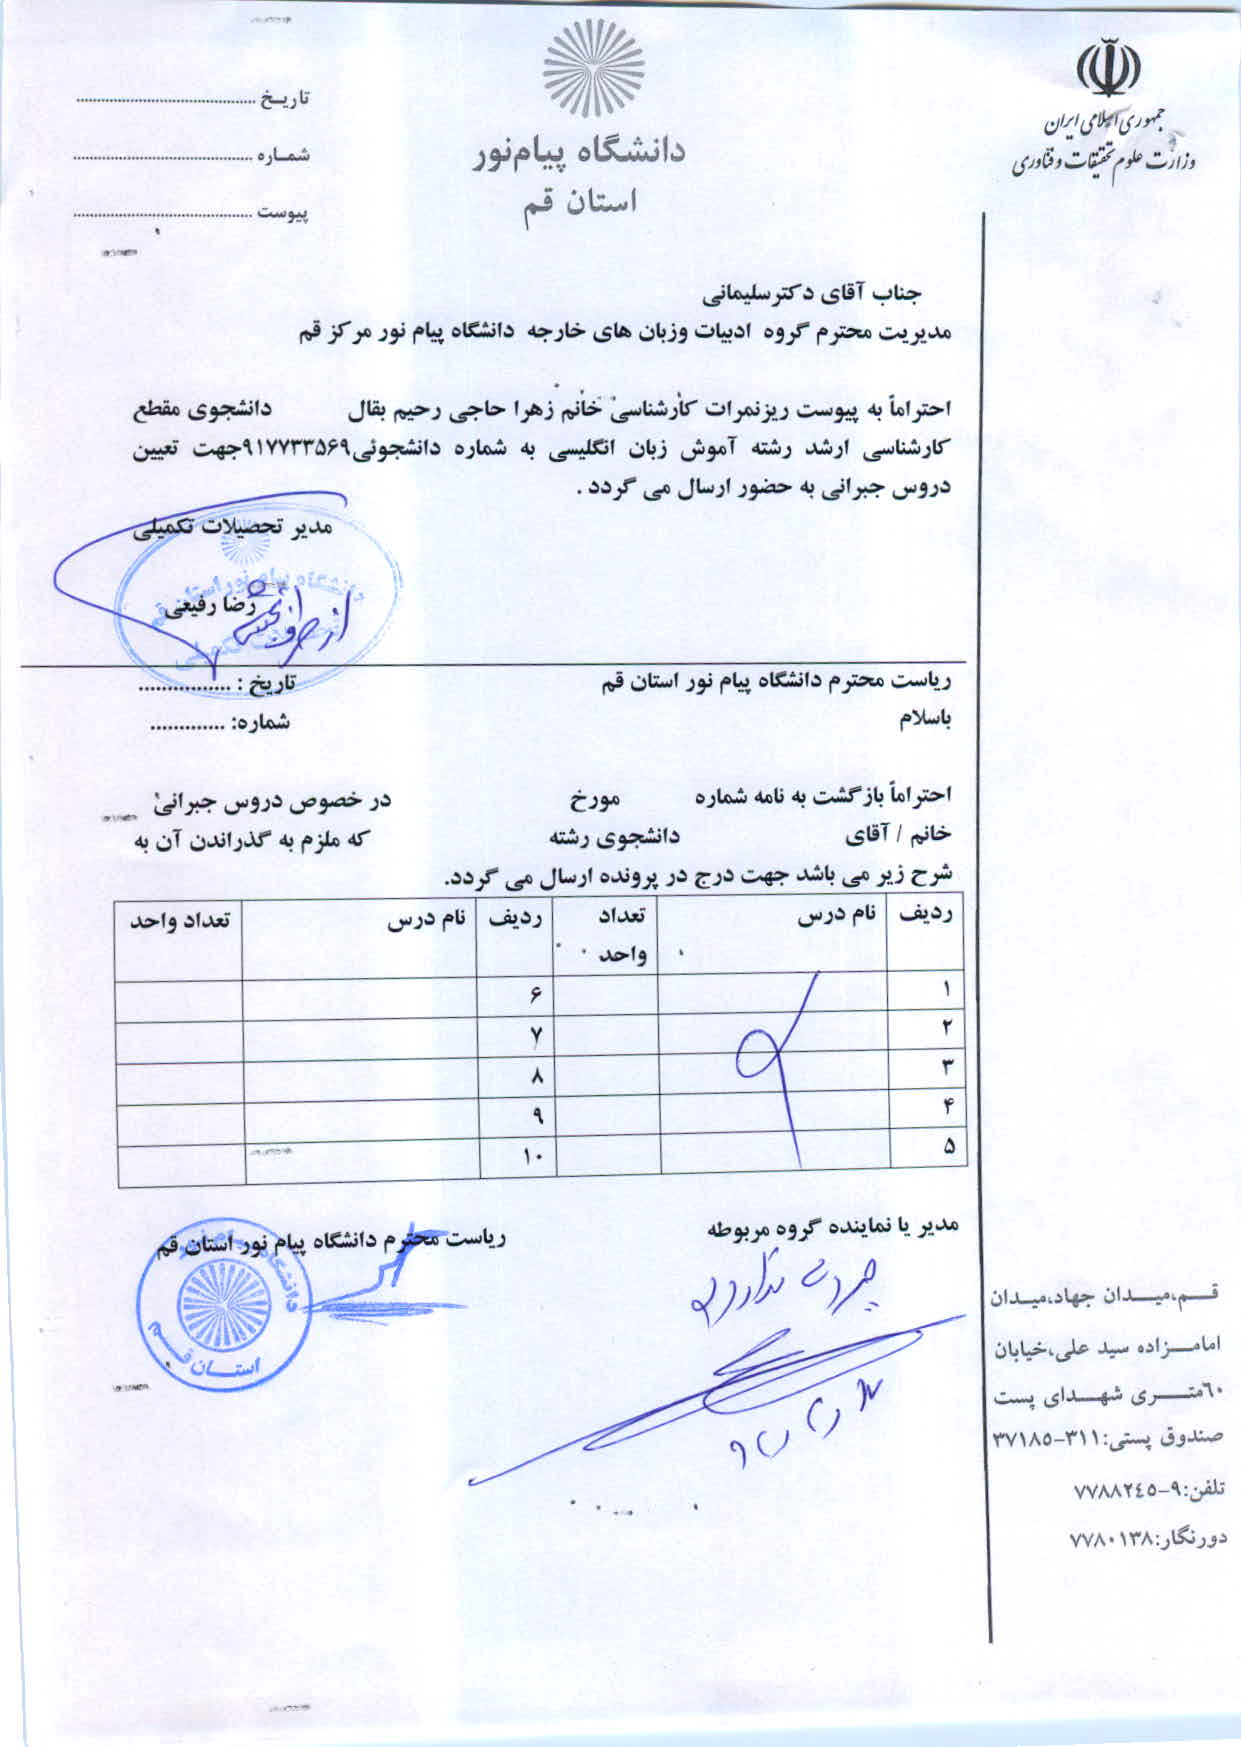 جمهوری اسلامی ایران
وزارت علوم تحقیقات و فناوری
دانشگاه پیام‌نور
استان قم
تاریخ ......................................
شماره ......................................
پیوست ......................................
جناب آقای دکترسلیمانی
مدیریت محترم گروه ادبیات وزبان های خارجه دانشگاه پیام نور مرکز قم
احتراماً به پیوست ریزنمرات کارشناسی خانم زهرا حاجی رحیم بقال دانشجوی مقطع
کارشناسی ارشد رشته آموش زبان انگلیسی به شماره دانشجوئی۹۱۷۷۳۳۵۶۹جهت تعیین
دروس جبرانی به حضور ارسال می گردد .
مدیر تحصیلات تکمیلی
رضا رفیعی
از طرف
دانشگاه پیام نور استان قم
تحصیلات تکمیلی
ریاست محترم دانشگاه پیام نور استان قم
تاریخ : ................
باسلام
شماره: .............
احتراماً بازگشت به نامه شماره مورخ در خصوص دروس جبرانی
خانم / آقای دانشجوی رشته که ملزم به گذراندن آن به
شرح زیر می باشد جهت درج در پرونده ارسال می گردد.
ردیف نام درس تعداد واحد ردیف نام درس تعداد واحد
۱ ۶
۲ ۷
۳ ۸
۴ ۹
۵ ۱۰
مدیر یا نماینده گروه مربوطه
ریاست محترم دانشگاه پیام نور استان قم
دانشگاه پیام نور
استان قم
قم،میدان جهاد،میدان
امامزاده سید علی،خیابان
٦٠متری شهدای پست
صندوق پستی:۳۱۱-۳۷۱۸٥
تلفن:۹-۷۷۸۸۲٤٥
دورنگار:۷۷۸۰۱۳۸